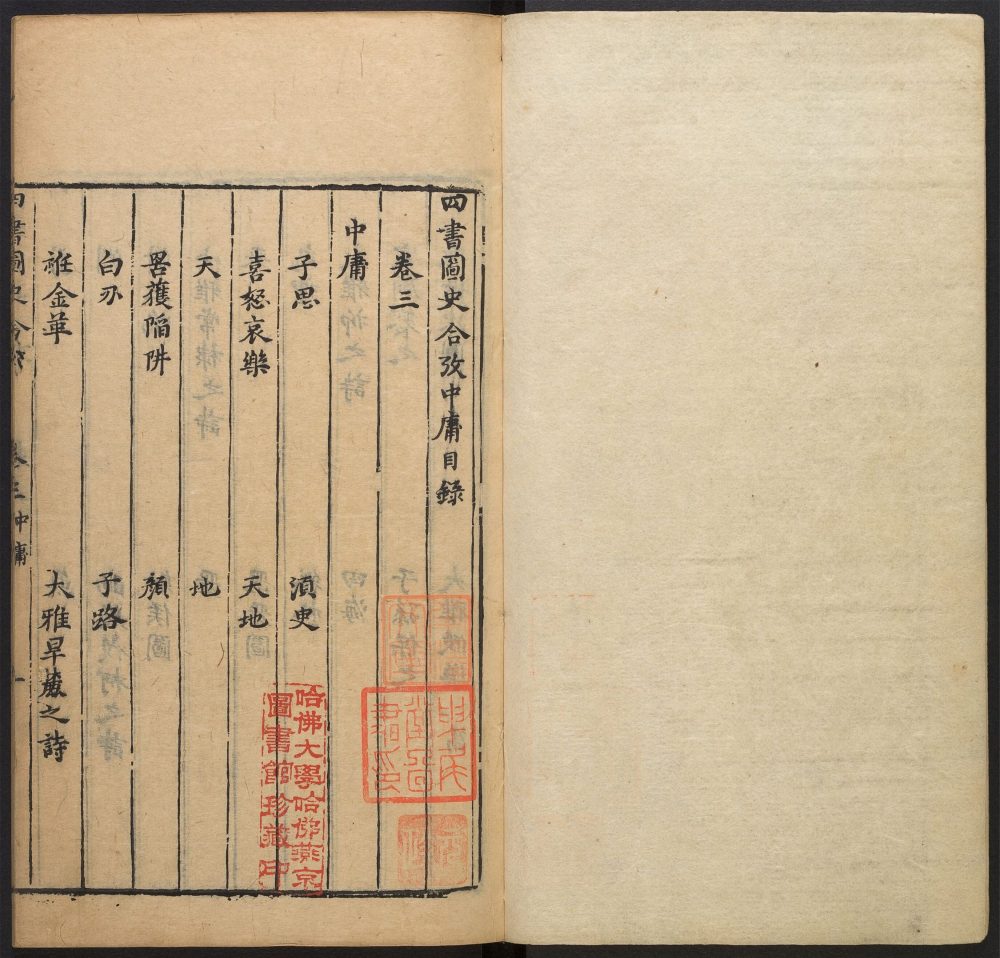 四書圖史合攷中庸目錄
卷三
中庸
子思 須臾
喜怒哀樂 天地
天 地
罟獲陷阱 顏
白刃 子路
衽金革 大雅旱麓之詩
四書圖史合攷 卷三中庸 一
哈佛大學哈佛燕京
圖書館珍藏印